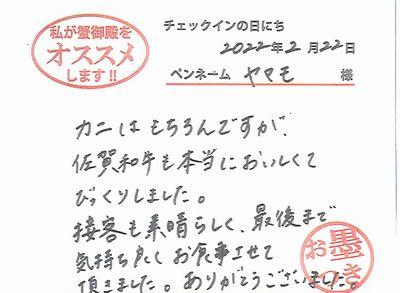 私が蟹御殿を
オススメ
します!!
チェックインの日にち
2022年2月22日
ペンネーム ヤマモ 様
カニはもちろんですが、
佐賀和牛も本当においしくて
びっくりしました。
接客も素晴らしく、最後まで
気持ち良くお食事させて
頂きました。ありがとうございました。
お墨
つき